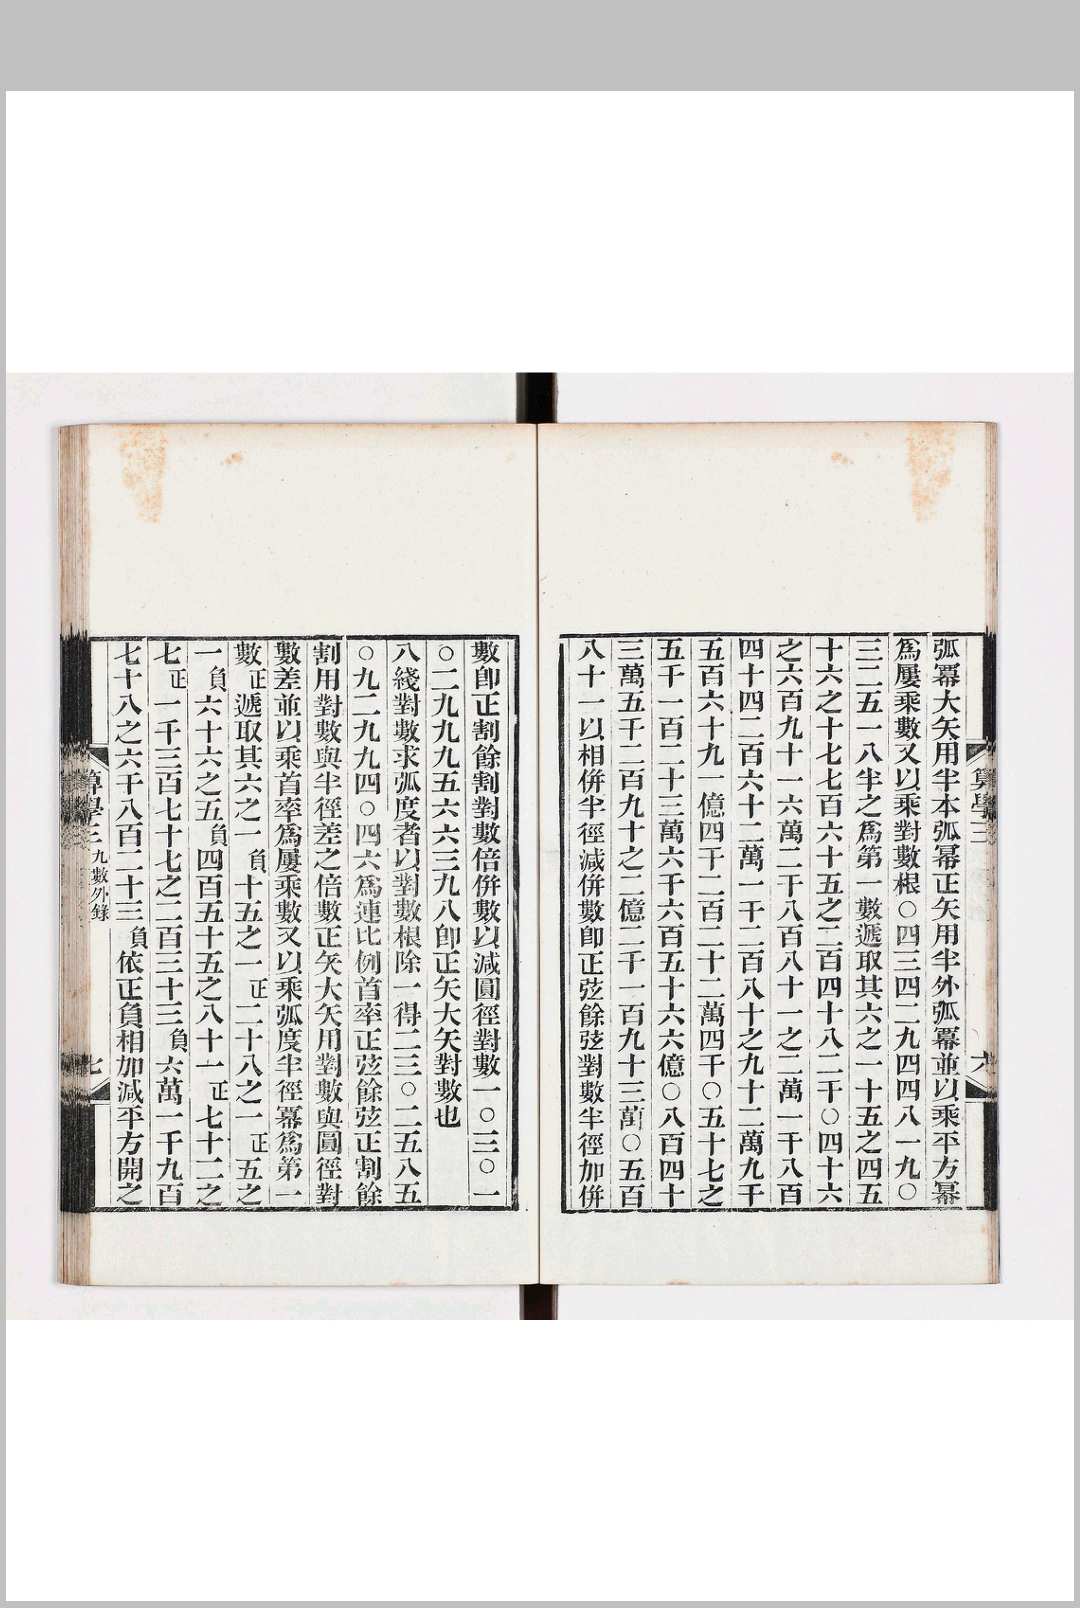 弧冪大矢用半本弧冪正矢用半外弧冪並以乘平方冪
爲屢乘數又以乘對數根○四三四二九四四八一九○
三二五一八半之爲第一數遞取其六之一十五之四五
十六之十七七百六十五之二百四十八二千○四十六
之六百九十一六萬二千八百八十一之二萬一千八百
四十四二百六十二萬一千二百八十之九十二萬九千
五百六十九一億四千二百二十二萬四千○五十七之
五千一百二十三萬六千六百五十六六億○八百四十
三萬五千二百九十之二億二千一百九十三萬○五百
八十一以相併半徑減併數卽正弦餘弦對數半徑加併
算學三
六
數卽正割餘割對數倍併數以減圓徑對數一○三○一
○二九九九五六六三九八卽正矢大矢對數也
八綫對數求弧度者以對數根除一得二三○二五八五
○九二九九四○四六爲連比例首率正弦餘弦正割餘
割用對數與半徑差之倍數正矢大矢用對數與圓徑對
數差並以乘首率爲屢乘數又以乘弧度半徑冪爲第一
數正遞取其六之一負十五之一正二十八之一正五之
一負六十六之五負四百五十五之八十一正七十二之
七正一千三百七十七之二百三十三負六萬一千九百
七十八之六千八百二十三負依正負相加減平方開之
算學三 九數外錄
七